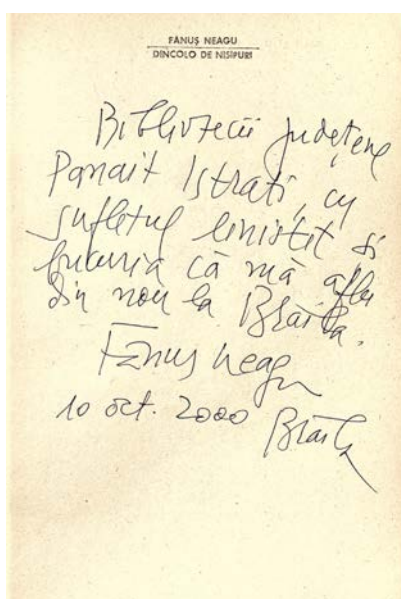 FĂNUȘ NEAGU
DINCOLO DE NISIPURI
Bibliotecii Județene
Panait Istrati, cu
sufletul liniștit și
bucuria că mă aflu
din nou la Brăila.
Fănuș Neagu
10 oct. 2000 Brăila